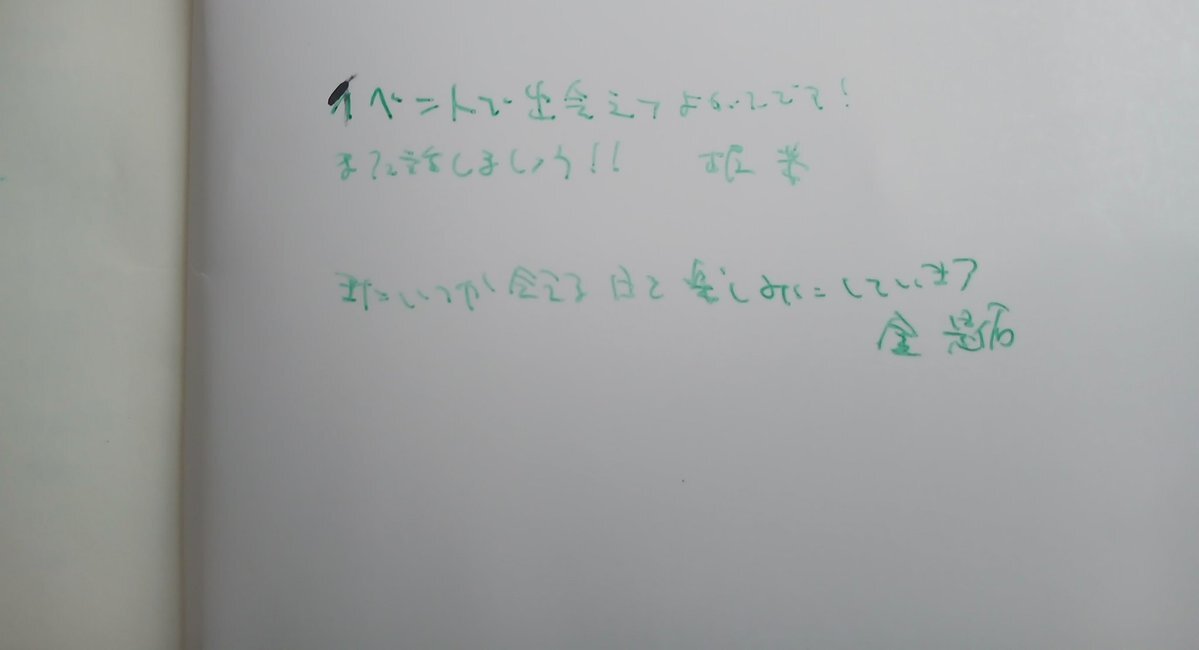 イベントで出会えてよかったです!
また話しましょう!! 堀 米
またいつか会える日を楽しみにしています
金